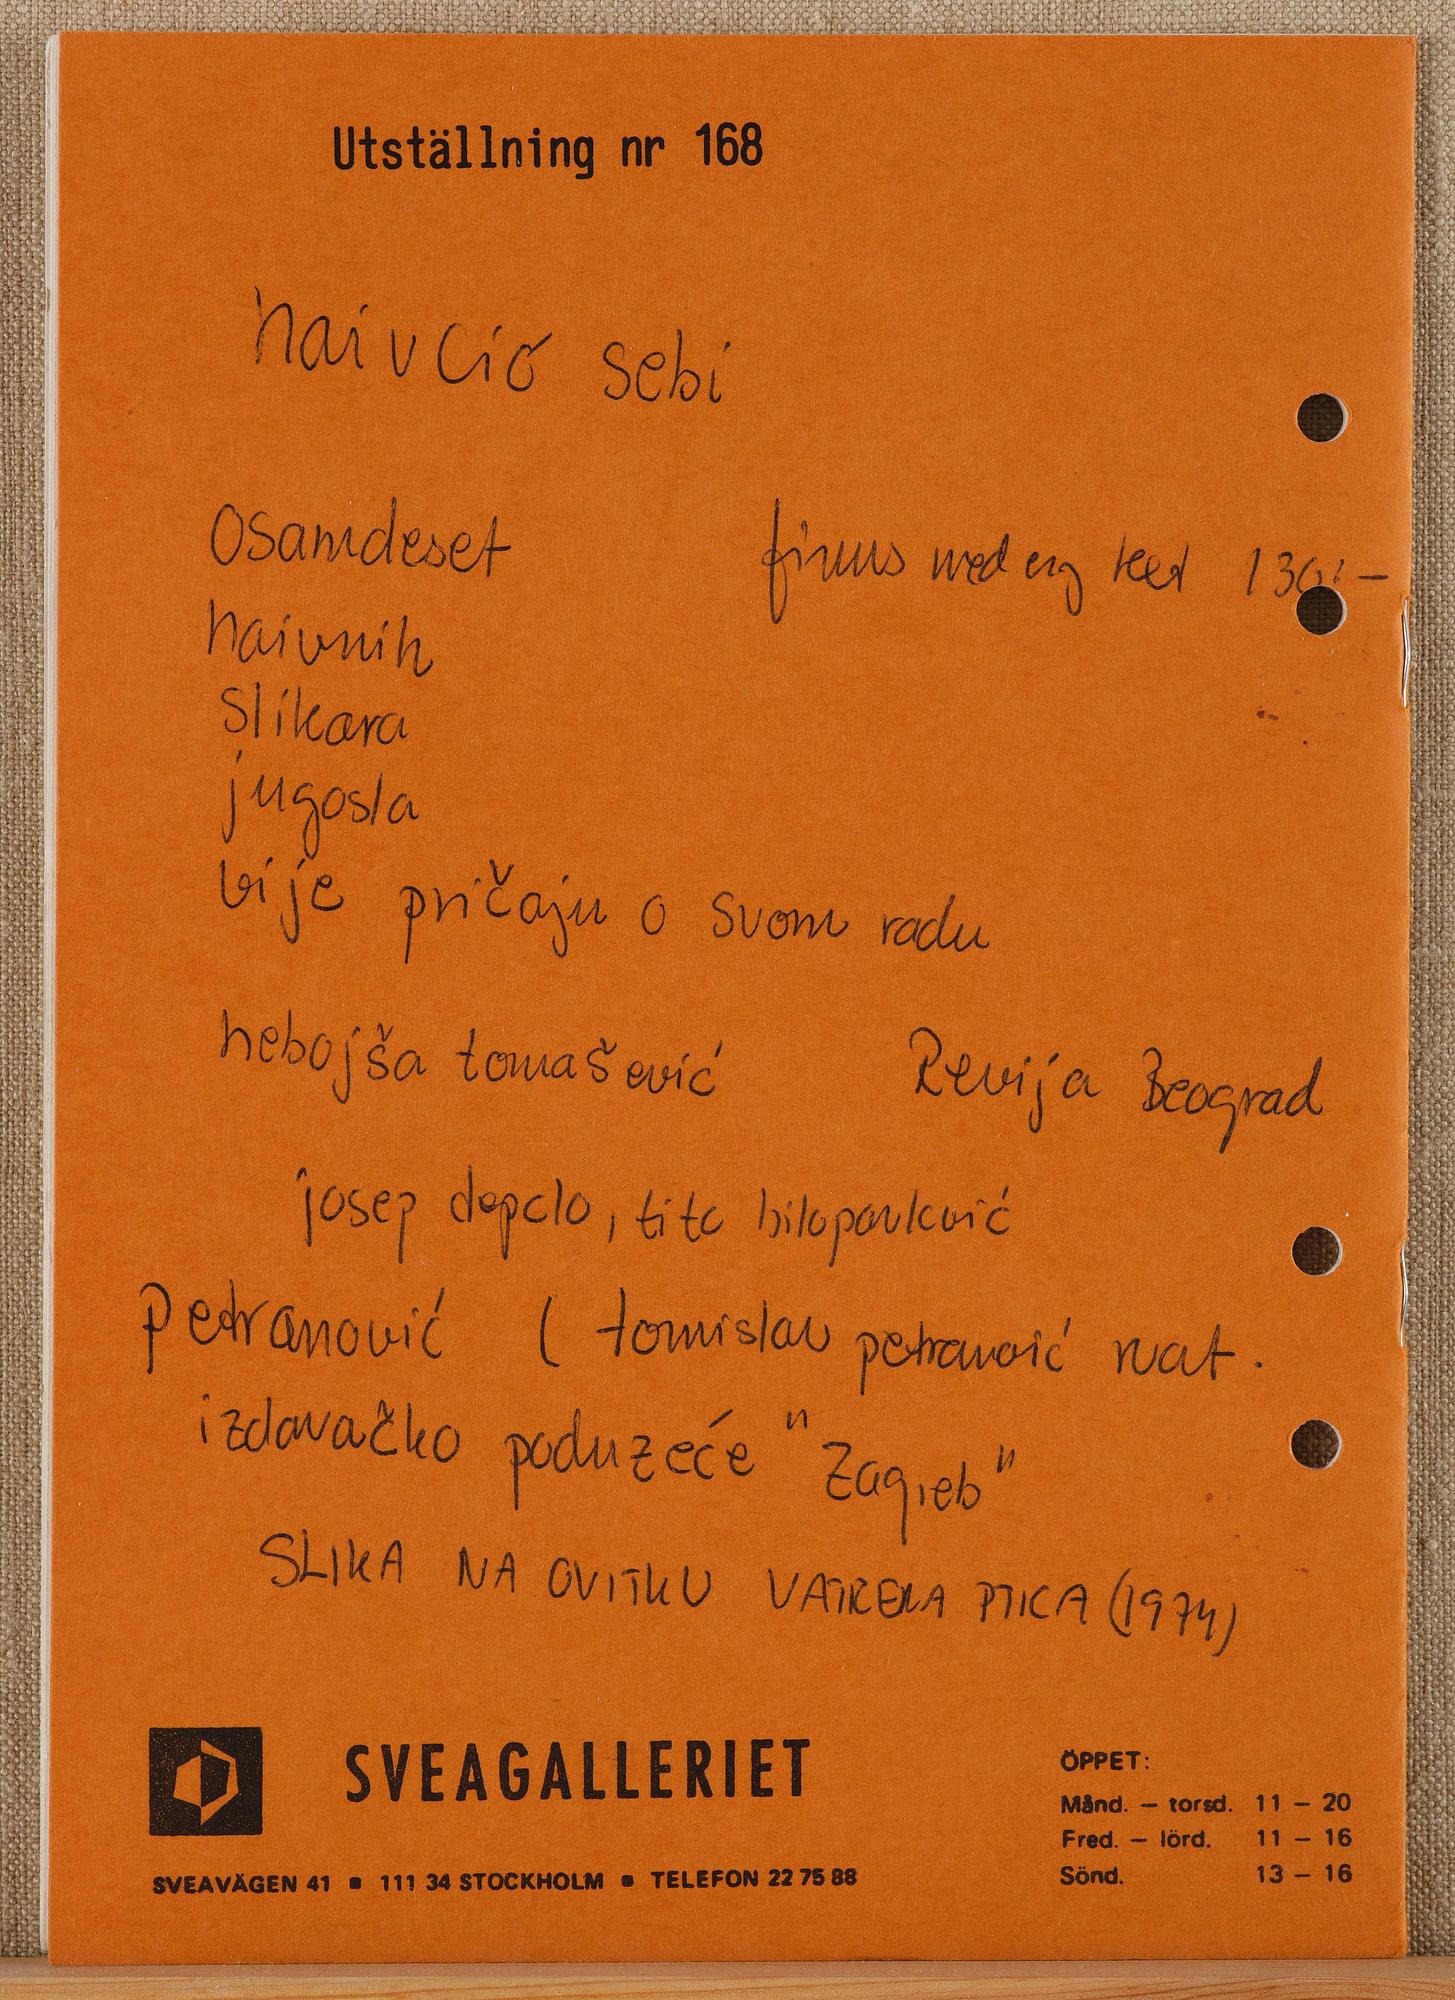 Utställning nr 168
naivci o sebi
Osamdeset finns med eng text 130:-
naivnih
slikara
jugosla
vije pričaju o svom radu
nebojša tomašević Revija Beograd
josep depolo, tito bilopavlović
petranović ( tomislav petranović rvat.
izdavačko poduzeće "Zagreb"
SLIKA NA OVITKU VATRENA PTICA (1974)
SVEAGALLERIET
SVEAVÄGEN 41 ▪ 111 34 STOCKHOLM ▪ TELEFON 22 75 88
ÖPPET:
Månd. – torsd. 11 – 20
Fred. – lörd. 11 – 16
Sönd. 13 – 16